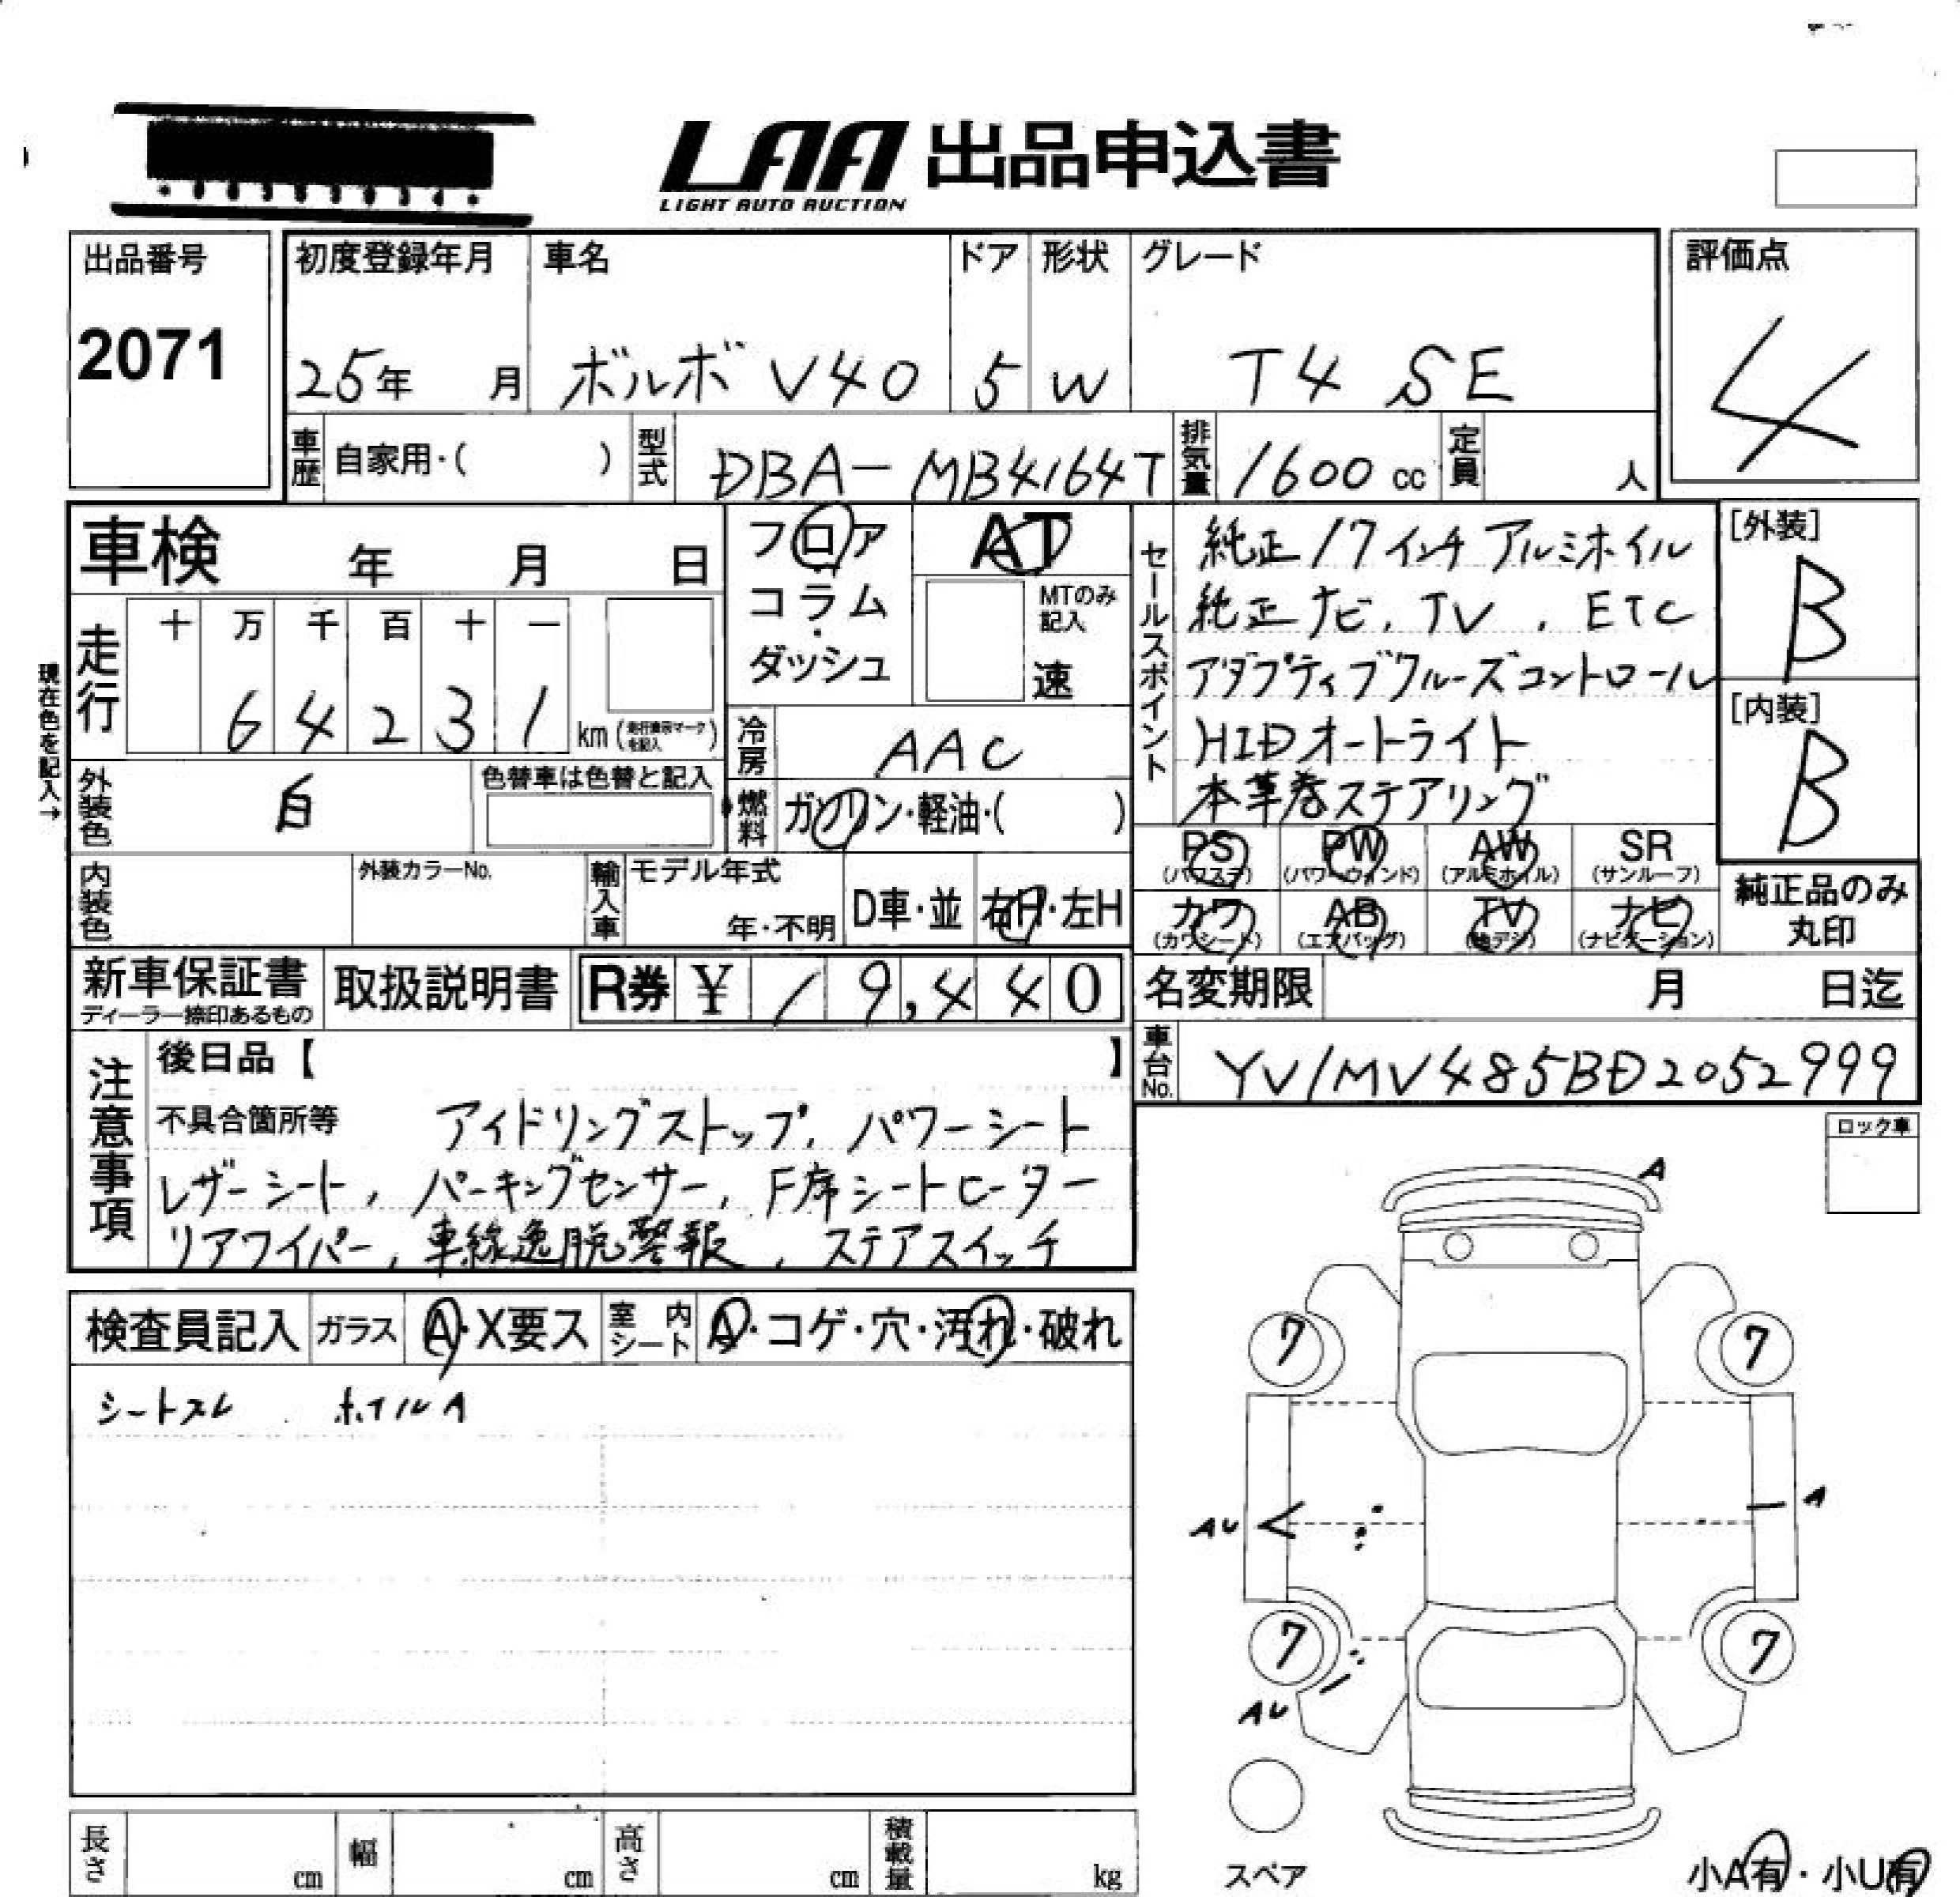 LAA 出品申込書
LIGHT AUTO AUCTION
出品番号 初度登録年月 車名 ドア 形状 グレード 評価点
2071 25年 月 ボルボ V40 5 W T4 SE 4
車歴 自家用・( ) 型式 DBA-MB4164T 排気量 1600 cc 定員 人
車検 年 月 日 フロア AT
コラム・ダッシュ MTのみ記入 速
セールスポイント
純正17インチアルミホイル
純正ナビ. TV. ETC
アダプティブクルーズコントロール
HIDオートライト
本革巻ステアリング
[外装] B
[内装] B
現在色を記入→
走行 十 万 千 百 十 一
6 4 2 3 1 km (走行表示マークを記入)
冷房 AAC
外装色 白 色替車は色替と記入
燃料 ガソリン・軽油・( )
PS (パワステ) PW (パワーウィンド) AW (アルミホイル) SR (サンルーフ)
カワ (カワシート) AB (エアバッグ) TV (地デジ) ナビ (ナビゲーション)
純正品のみ丸印
内装色 外装カラーNo. 輸入車 モデル年式 年・不明 D車・並 右H・左H
新車保証書 ディーラー捺印あるもの 取扱説明書 R券 ¥ 19,440
名変期限 月 日迄
車台No. YV1MV485BD2052999
注意事項
後日品【 】
不具合箇所等 アイドリングストップ, パワーシート
レザーシート, パーキングセンサー, F席シートヒーター
リアワイパー, 車線逸脱警報, ステアスイッチ
ロック車
検査員記入 ガラス A・X要ス 室内シート A・コゲ・穴・汚れ・破れ
シートスレ ホイルA
A
7 7
AU A
7 7
AU
スペア
小A有・小U有
長さ cm 幅 cm 高さ cm 積載量 kg